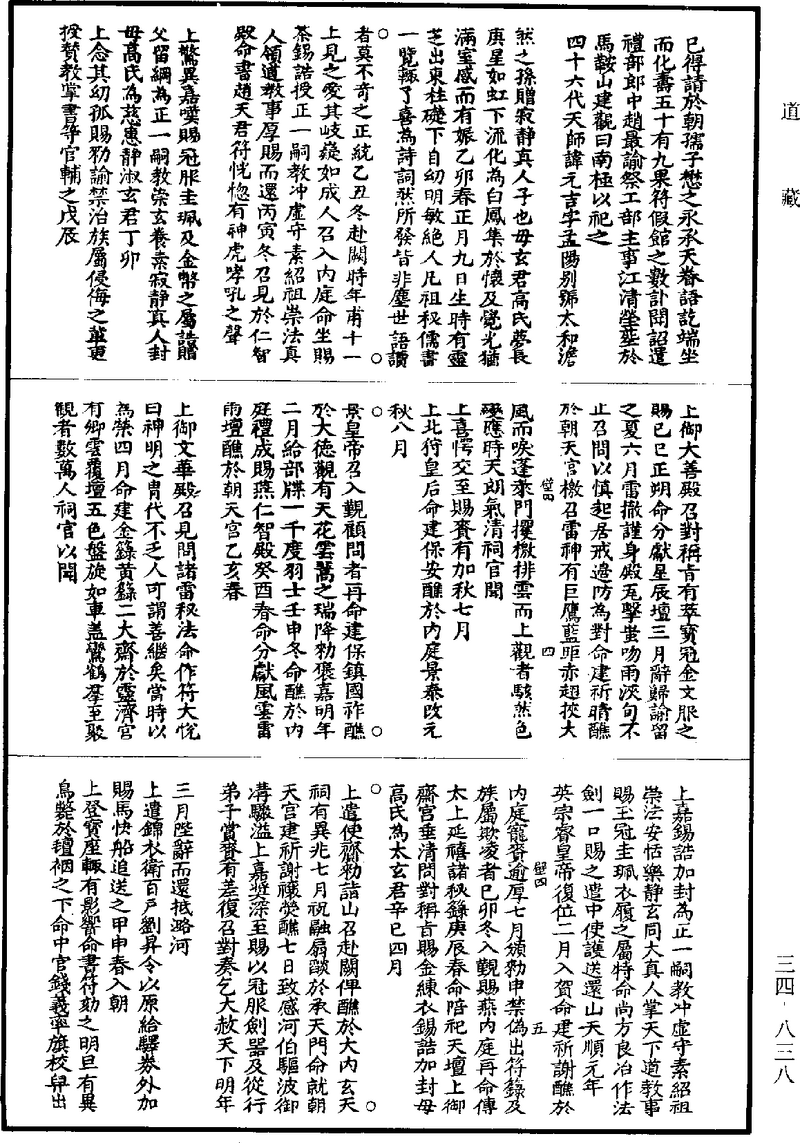 道藏
已得請於朝孺子懋之永承天眷語訖端坐
而化壽五十有九果符假館之數訃聞詔遣
禮部郎中趙最諭祭工部主事江清塋葬於
馬鞍山建觀曰南極以祀之
四十六代天師諱元吉字孟陽別號太和澹
然之孫贈寂靜真人子也毋玄君高氏夢長
庚星如虹下流化為白鳳集於懷及覺光猶
滿室感而有娠乙卯春正月九日生時有靈
芝出東柱礎下自幼明敏絕人凡祖秘儒書
一覽輒了喜為詩詞然所發皆非塵世語讀
者莫不奇之正統乙丑冬赴闕時年甫十一
上見之愛其岐嶷如成人召入內庭命坐賜
茶錫誥授正一嗣教冲虛守素紹祖崇法真
人領道教事厚賜而還丙寅冬召見於仁智
殿命書趙天君符恍惚有神虎哮吼之聲
上驚異嘉嘆賜冠服圭珮及金幣之屬誥贈
父留綱為正一嗣教崇玄養素寂靜真人封
毋高氏為慈惠靜淑玄君丁卯
上念其幼孤賜勑諭禁治族屬侵侮之輩更
授贊教掌書等官輔之戊辰
上御大善殿召對稱旨有萃寶冠金文服之
賜己巳正朔命分獻星辰壇三月辭歸諭留
之夏六月雷撤謹身殿瓦擊蚩吻雨浹旬不
止召問以慎起居戒邊防為對命建祈晴醮
於朝天宮檄召雷神有巨鷹藍距赤翅挾大
風而唳蓬萊門攫檄排雲而上觀者駭然色
變應時天朗氣清祠官聞
上喜愕交至賜賚有加秋七月
上北狩皇后命建保安醮於內庭景泰改元
秋八月
景皇帝召入觀顧問者再命建保鎮國祚醮
於大德觀有天花雲鶴之瑞降勑褒嘉明年
二月給部牒一千度羽士壬申冬命醮於內
庭禮成賜燕仁智殿癸酉春命分獻風雲雷
雨壇醮於朝天宮乙亥春
上御文華殿召見問諸雷秘法命作符大悅
曰神明之胄代不乏人可謂善繼矣當時以
為榮四月命建金籙黃籙二大齋於靈濟宮
有卿雲覆壇五色盤旋如車盖鸞鶴羣至聚
觀者數萬人祠官以聞
上嘉錫誥加封為正一嗣教冲虛守素紹祖
崇法安恬樂靜玄同大真人掌天下道教事
賜玉冠圭珮衣履之屬特命尚方良冶作法
劍一口賜之遣中使護送還山天順元年
英宗睿皇帝復位二月入賀命建祈謝醮於
內庭寵賚逾厚七月頒勑申禁偽出符籙及
族屬欺凌者己卯冬入覲賜燕內庭再命傳
太上延禧諸秘籙庚辰春命陪祀天壇上御
齋宮垂清問對稱旨賜金練衣錫誥加封毋
高氏為太玄君辛巳四月
上遣使齎勑詣山召赴闕俾醮於大內玄天
祠有異兆七月祝融扇燄於承天門命就朝
天宮建祈謝禳熒醮七日致感河伯驅波御
溝驟溢上嘉奬深至賜以冠服劍器及從行
弟子賞賚有差復召對奏乞大赦天下明年
三月陛辭而還抵潞河
上遣錦衣衛百戶劉昇令以原給驛券外加
賜馬快船追送之甲申春入朝
上登寶座輒有影響命書符劾之明旦有異
鳥斃於氊裀之下命中官錢義寧旗校舁出
三四·八三八